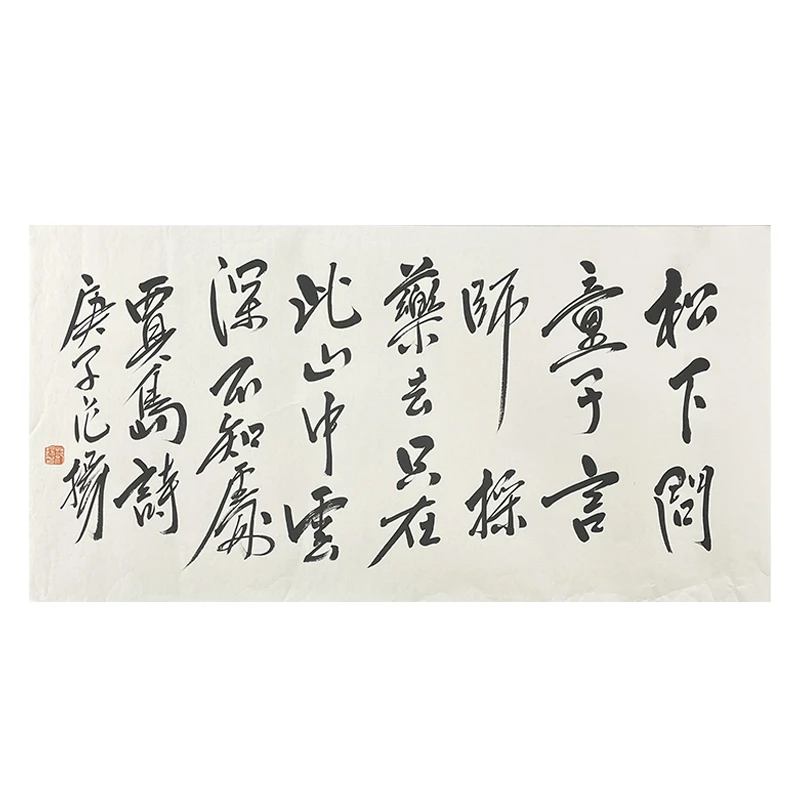 松下問
童子言
師採
藥去只在
此山中雲
深不知處
賈島詩
庚子范揚